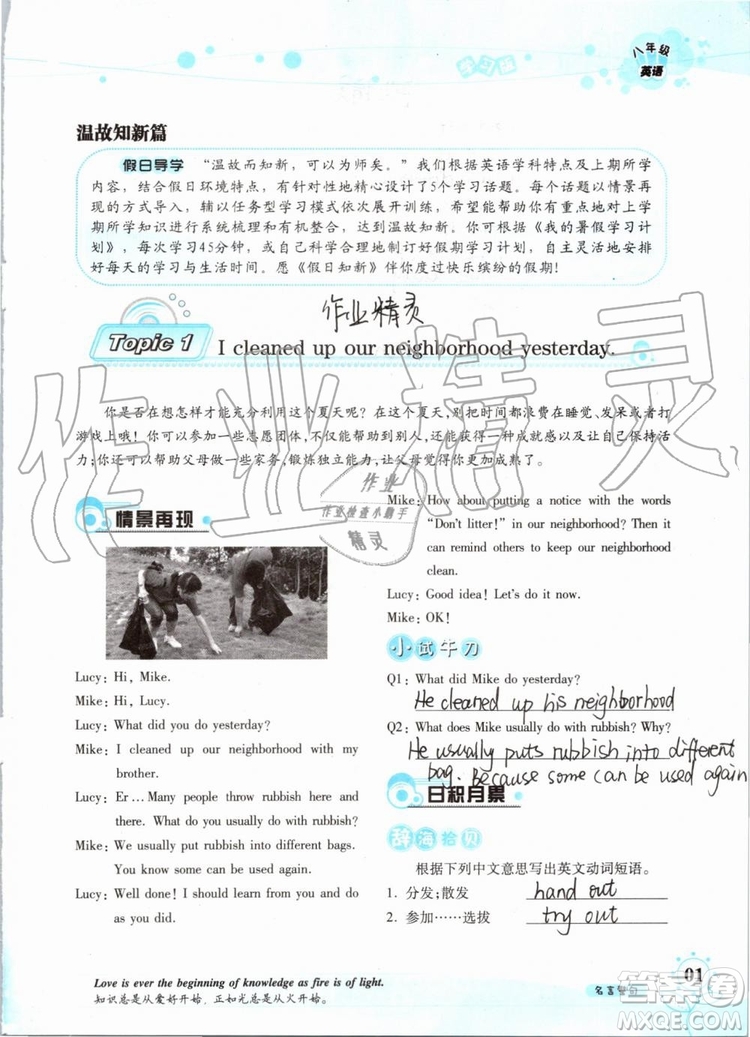 学习版
八年级
英语
温故知新篇
假日导学 “温故而知新，可以为师矣。”我们根据英语学科特点及上期所学
内容，结合假日环境特点，有针对性地精心设计了5个学习话题。每个话题以情景再
现的方式导入，辅以任务型学习模式依次展开训练，希望能帮助你有重点地对上学
期所学知识进行系统梳理和有机整合，达到温故知新。你可根据《我的暑假学习计
划》，每次学习45分钟，或自己科学合理地制订好假期学习计划，自主灵活地安排
好每天的学习与生活时间。愿《假日知新》伴你度过快乐缤纷的假期！
作业精灵
Topic 1 I cleaned up our neighborhood yesterday.
你是否在想怎样才能充分利用这个夏天呢？在这个夏天，别把时间都浪费在睡觉、发呆或者打
游戏上哦！你可以参加一些志愿团体，不仅能帮助到别人，还能获得一种成就感以及让自己保持活
力；你可以帮助父母做一些家务，锻炼独立能力，让父母觉得你更加成熟了。
情景再现
Lucy: Hi, Mike.
Mike: Hi, Lucy.
Lucy: What did you do yesterday?
Mike: I cleaned up our neighborhood with my
brother.
Lucy: Er… Many people throw rubbish here and
there. What do you usually do with rubbish?
Mike: We usually put rubbish into different bags.
You know some can be used again.
Lucy: Well done! I should learn from you and do
as you did.
Mike: How about putting a notice with the words
“Don't litter!” in our neighborhood? Then it
can remind others to keep our neighborhood
clean.
Lucy: Good idea! Let's do it now.
Mike: OK!
小试牛刀
Q1: What did Mike do yesterday?
He cleaned up his neighborhood
Q2: What does Mike usually do with rubbish? Why?
He usually puts rubbish into different
bag. Because some can be used again
日积月累
辞海拾贝
根据下列中文意思写出英文动词短语。
1. 分发；散发 hand out
2. 参加……选拔 try out
Love is ever the beginning of knowledge as fire is of light.
知识总是从爱好开始，正如光总是从火开始。
名言警句
01
作业精灵
作业
作业检查小助手
精灵
答案圈
MXQE.COM